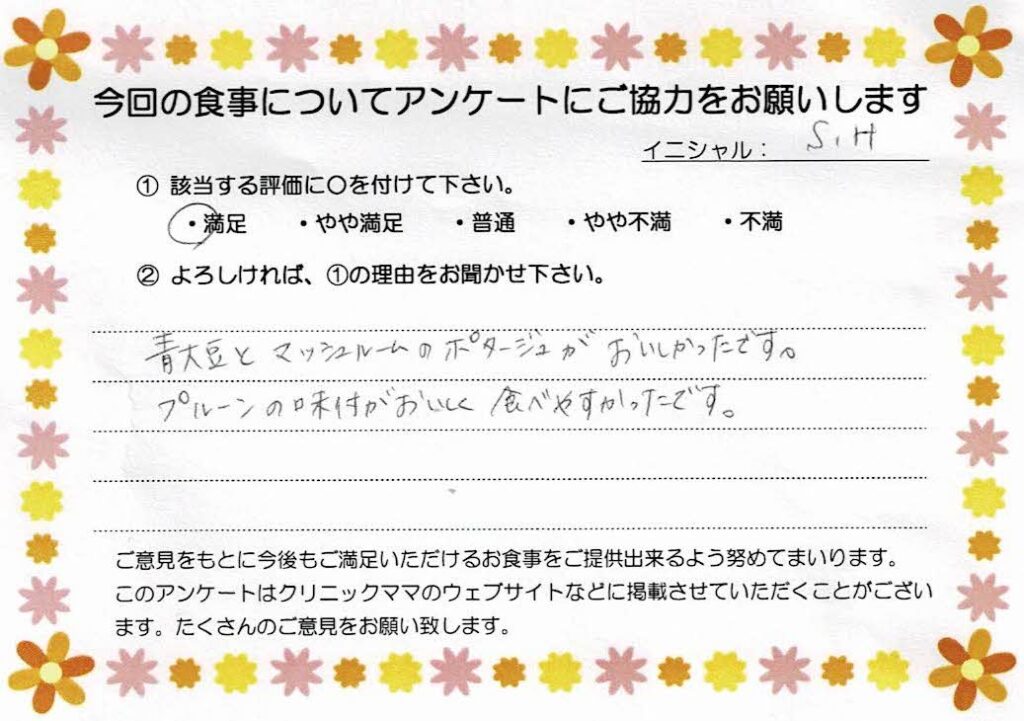 今回の食事についてアンケートにご協力をお願いします
イニシャル： S.H
① 該当する評価に○を付けて下さい。
・満足 ・やや満足 ・普通 ・やや不満 ・不満
② よろしければ、①の理由をお聞かせ下さい。
青大豆とマッシュルームのポタージュがおいしかったです。
プルーンの味付がおいしく食べやすかったです。
ご意見をもとに今後もご満足いただけるお食事をご提供出来るよう努めてまいります。
このアンケートはクリニックママのウェブサイトなどに掲載させていただくことがござい
ます。たくさんのご意見をお願い致します。